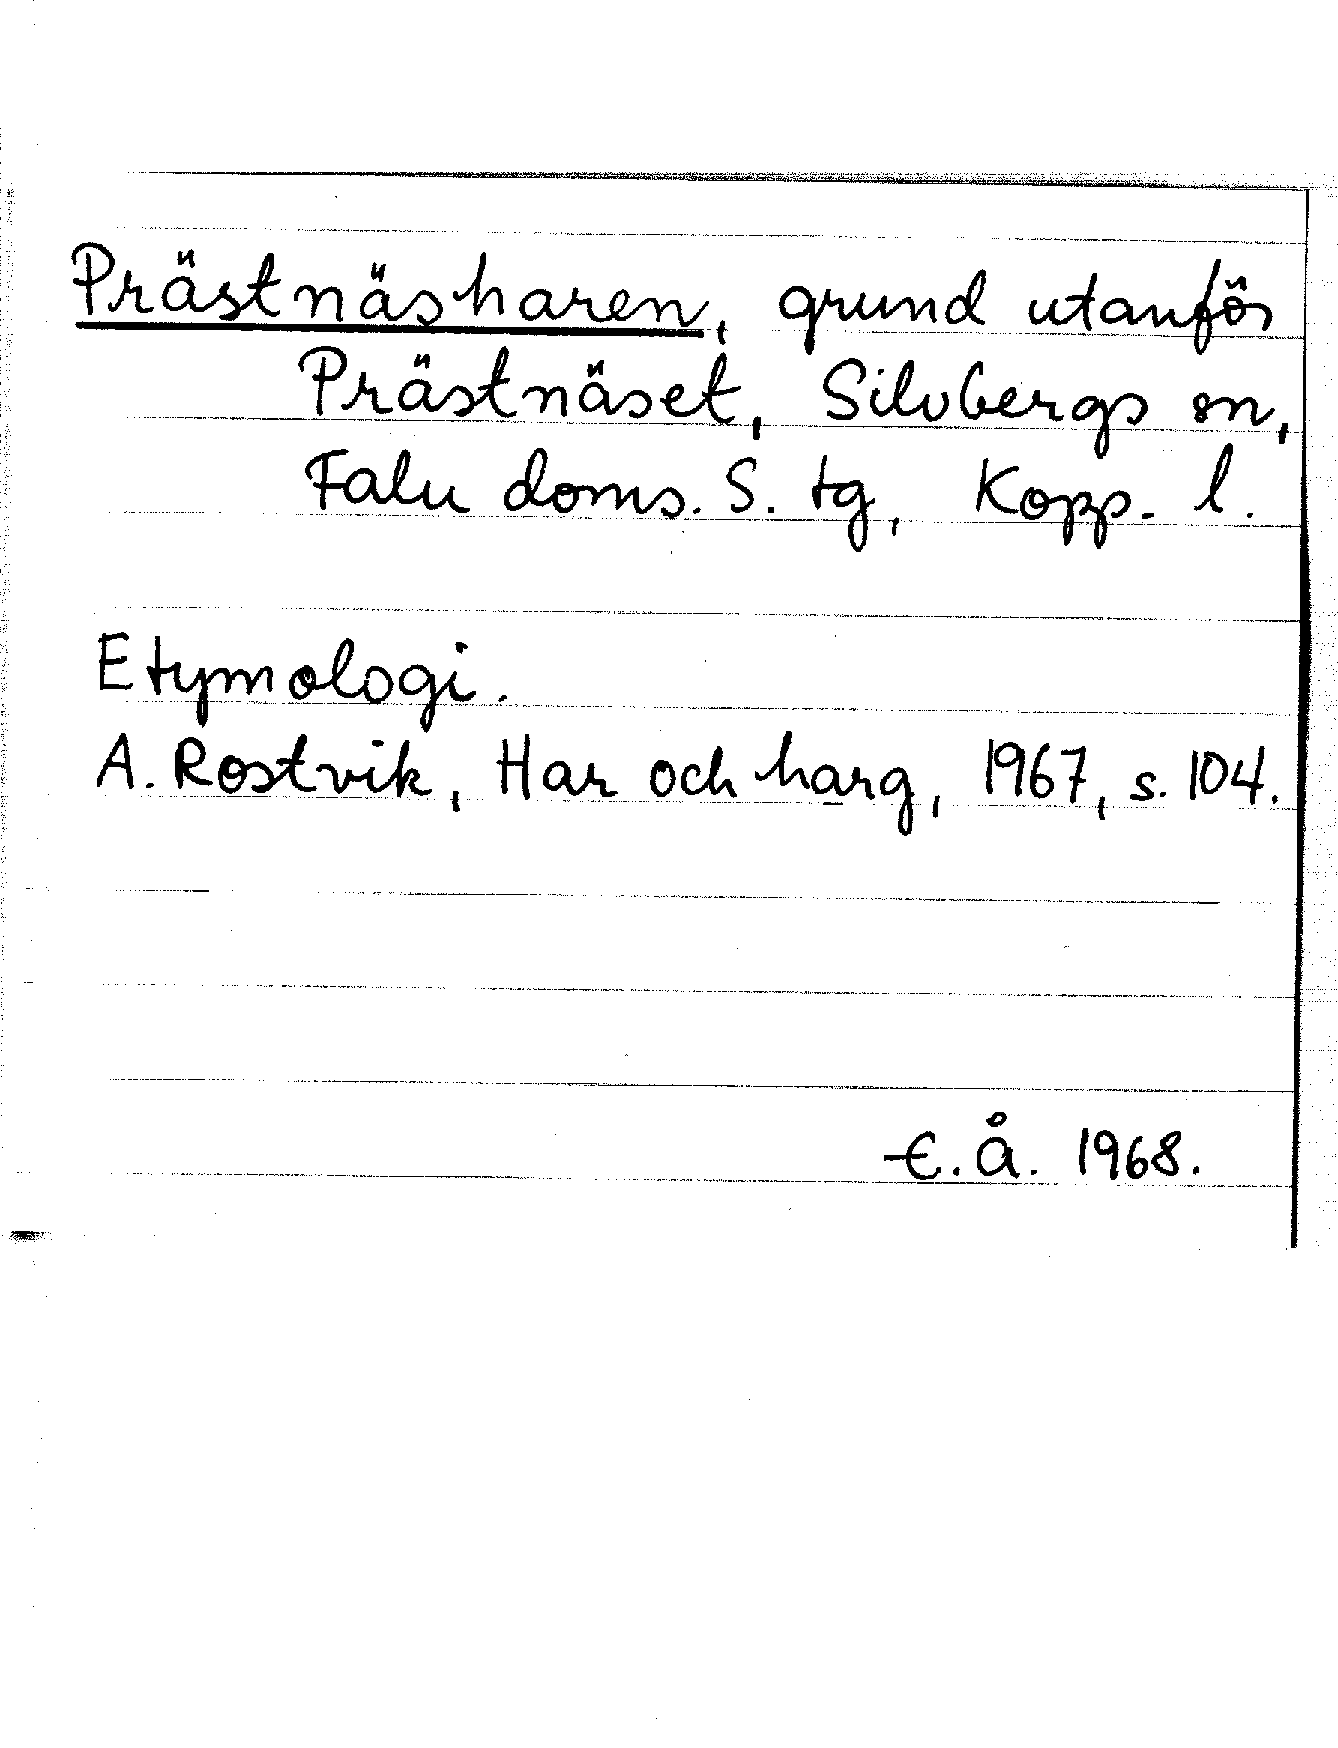 Prästnäsharen, grund utanför
Prästnäset, Silvbergs sn,
Falu doms. S. tg, Kopp. l.
Etymologi.
A. Rostvik, Har och harg, 1967, s. 104.
E. Å. 1968.